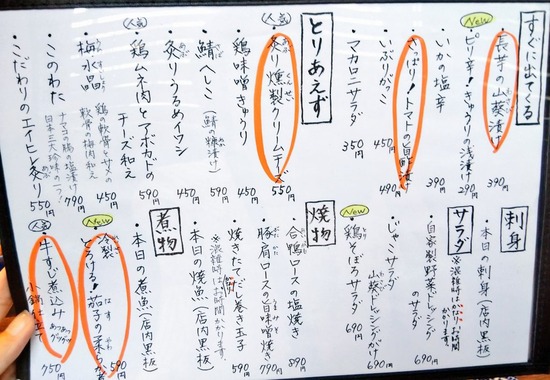 すぐに出てくる
・長芋の山葵漬け 390円
New
・ピリ辛！きゅうりの浅漬け 290円
・いかの塩辛 390
・さっぱり！トマトの旨酢漬け 490円
・いぶりがっこ 450円
・マカロニサラダ 350
とりあえず
人気
・炙り燻製クリームチーズ 550円
・鶏味噌きゅうり 450円
・鯖へしこ（鯖の糠漬け） 590円
・炙りうるめイワシ 450
人気
・鶏ムネ肉とアボカドの
チーズ和え 590
・梅水晶 鶏の軟骨とサメの
軟骨の梅肉和え 450円
・このわた ナマコの腸の塩漬け
日本三大珍味の一つ！ 790
・こだわりのエイヒレ炙り 550円
刺身
・本日の刺身（店内黒板）
サラダ
※混雑時はかなりお時間
かかります。
・自家製野菜ドレッシング
のサラダ 690円
・じゃこサラダ
山葵ドレッシングがけ 690
New
・鶏そぼろサラダ 690円
焼物
・合鴨ロースの塩焼き 890
・豚肩ロースの旨味噌焼き 790円
・焼きたてだし巻き玉子 590円
※混雑時はお時間かかります。
・本日の焼魚（店内黒板）
煮物
・本日の煮魚（店内黒板）
New
・冷製
とろける！茄子の煮びたし 590
人気
・牛すじ煮込み あつあつ
グツグツ
小鍋仕立て 750円